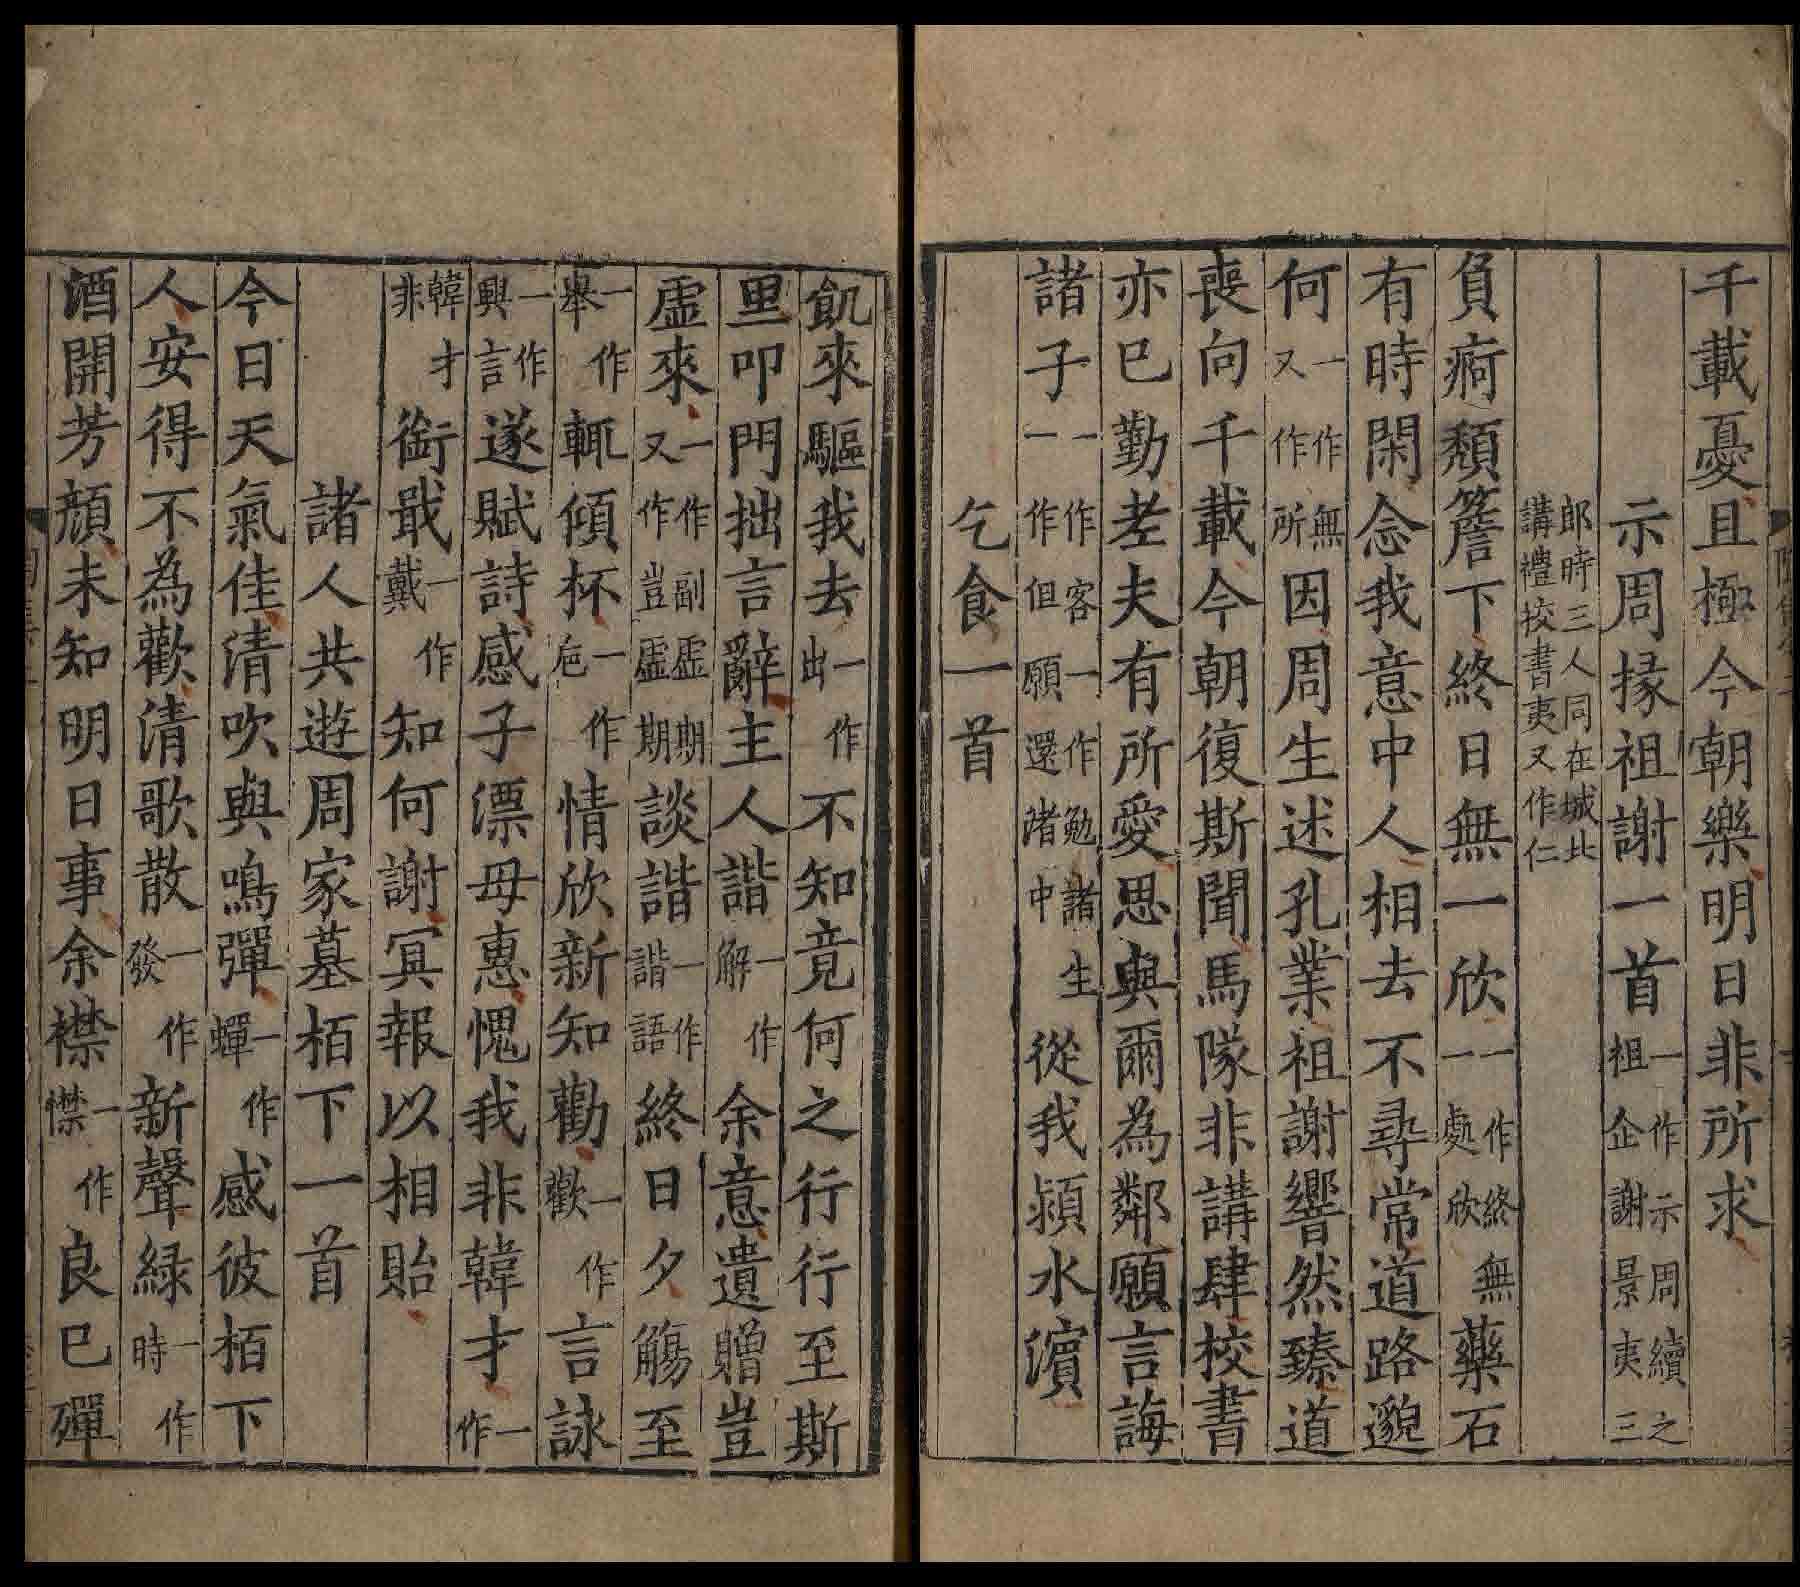 千載憂且極今朝樂明日非所求
示周掾祖謝一首一作示周續之祖企謝景夷三
郎時三人同在城北講禮挍書夷又作仁
負痾頹簷下終日無一欣一作終無一處欣藥石
有時閑念我意中人相去不尋常道路邈
何一作無又作所因周生述孔業祖謝響然臻道
喪向千載今朝復斯聞馬隊非講肆校書
亦已勤老夫有所愛思與爾為鄰願言誨
諸子一作客一作勉諸生一作但願還渚中從我潁水濵
乞食一首
飢來驅我去一作出不知竟何之行行至斯
里叩門拙言辭主人諧一作解余意遺贈豈
虛來一作副虛期又作豈虛期談諧一作諧語終日夕觴至
一作舉輒傾杯一作巵情欣新知勸一作歡言詠
一作興言遂賦詩感子漂母惠愧我非韓才一作
韓才非銜戢一作戴知何謝冥報以相貽
諸人共遊周家墓栢下一首
今日天氣佳清吹與鳴彈一作蟬感彼栢下
人安得不為歡清歌散一作發新聲緑一作時
酒開芳顔未知明日事余襟一作㦗良已殫